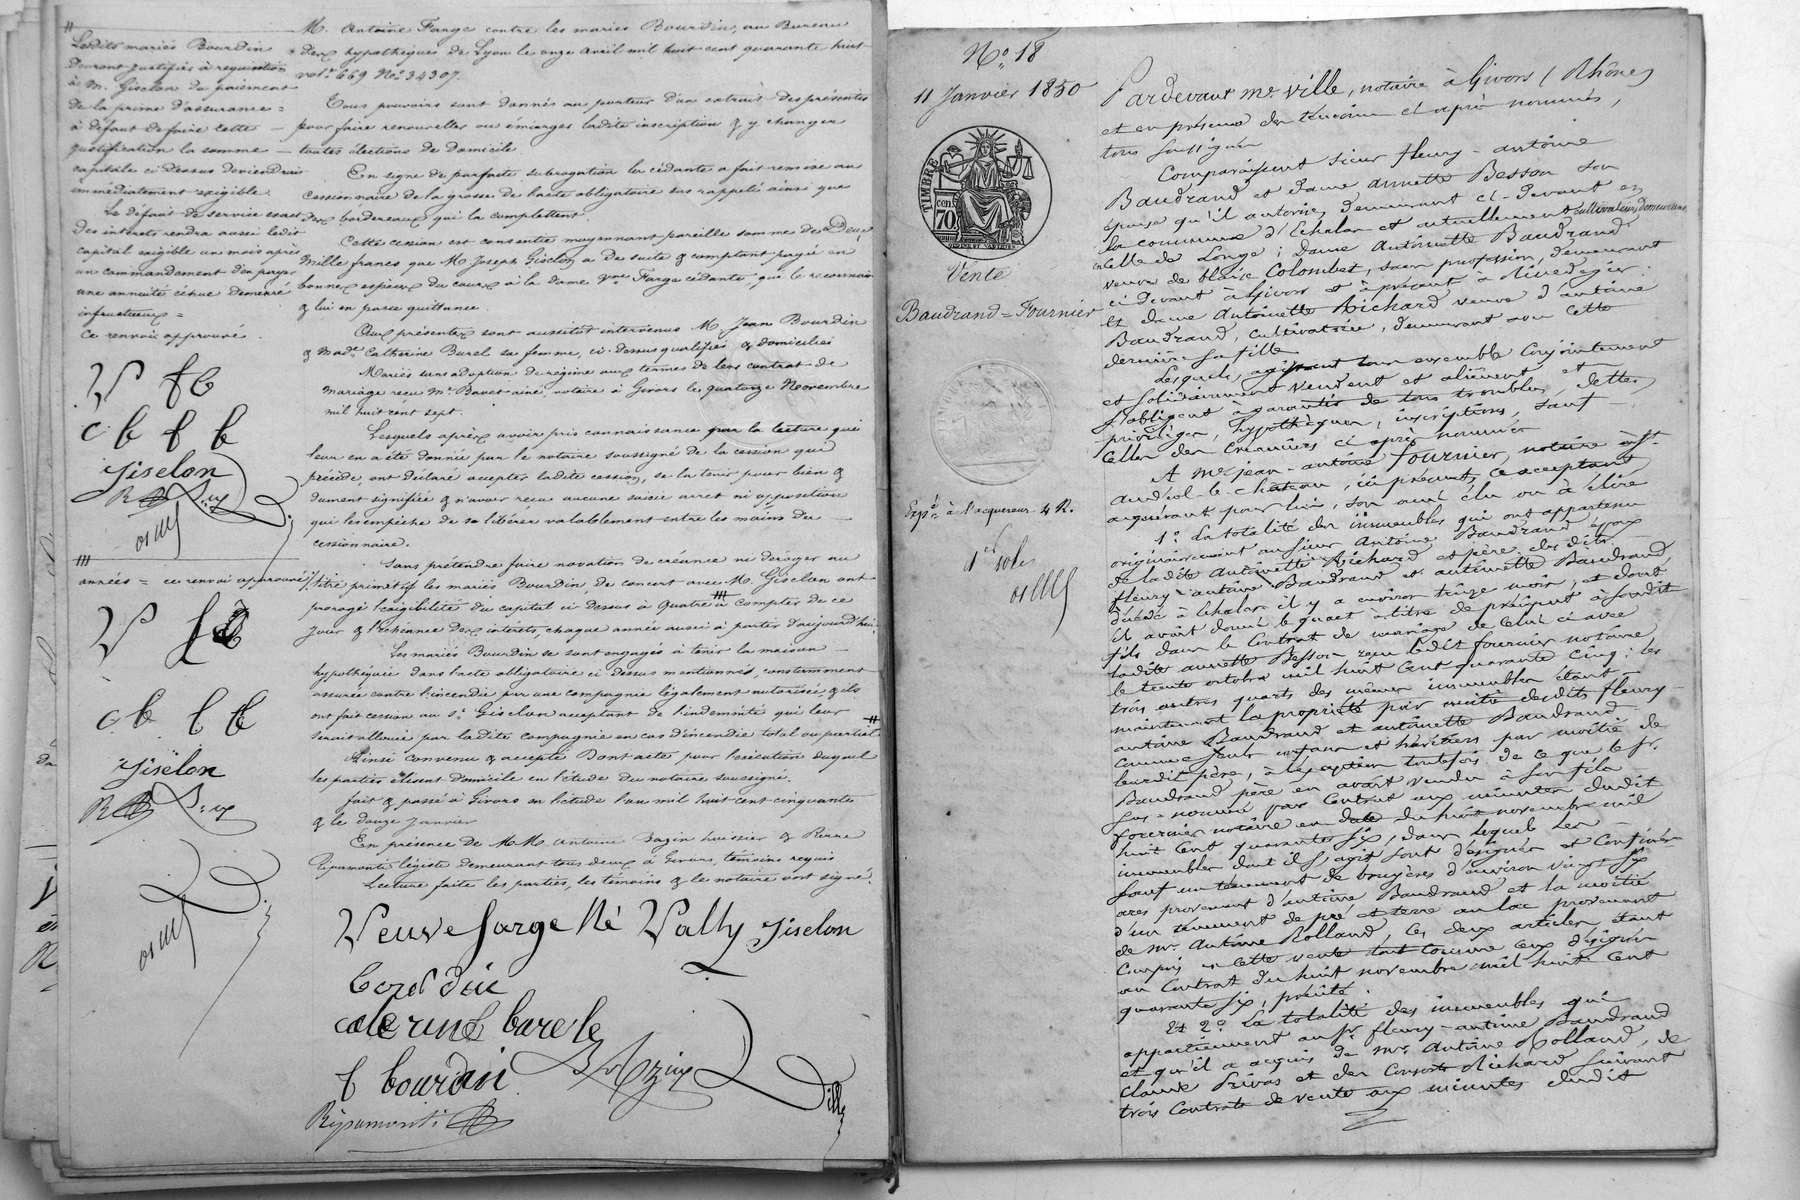 Lesdits mariés Bourdin
devront justifier à réquisition
à M. Giselon du paiement
de la prime d'assurance =
à défaut de faire cette
justification la somme
capitale ci dessus deviendrait
immédiatement exigible.
Le défaut de service exact
des intérêts rendra aussi ledit
capital exigible un mois après
un commandement d'en payer
une annuité échue demeuré
infructueux =
Ce renvoi approuvé.
Giselon
années = ce renvoi approuvé
Giselon
M. Antoine Farge contre les mariés Bourdin, au Bureau
des hypothèques de Lyon le onze avril mil huit cent quarante huit
vol. 669 No. 34307.
Tous pouvoirs sont donnés au porteur d'un extrait des présentes
pour faire renouveller ou émarger ladite inscription & y changer
toutes élections de domicile
En signe de parfaite subrogation la cédante a fait remise au
cessionnaire de la grosse de l'acte obligatoire sus rappelé ainsi que
des bordereaux qui la complettent.
Cette cession est consentie moyennant pareille somme de Deux
mille francs que M. Joseph Giselon a de suite & comptant payé en
bonnes espèces du cours à la dame Vve Farge cédante, que le reconnait
& lui en passe quittance.
Aux présentes sont aussitôt intervenus M. Jean Bourdin
& Made. Catherine Burel sa femme, ci-dessus qualifiés & domiciliés
Mariés sans adoption de régime aux termes de leur contrat de
mariage reçu Me. Bavet ainé, notaire à Givors le quatorze Novembre
mil huit cent sept.
Lesquels après avoir pris connaissance par la lecture qui
leur en a été donnée par le notaire soussigné de la cession qui
précède, ont déclaré accepter ladite cession, se la tenir pour bien &
dument signifiée & n'avoir reçu aucune saisie arrêt ni opposition
qui les empêche de se libérer valablement entre les mains du
cessionnaire.
Sans prétendre faire novation de créance ni déroger au
titre primitif les mariés Bourdin, de concert avec M. Giselon ont
prorogé l'exigibilité du capital ci dessus à quatre à compter de ce
jour & l'échéance des intérêts, chaque année aussi à partir d'aujourd'hui.
Les mariés Bourdin se sont engagés à tenir la maison
hypothéquée dans l'acte obligatoire ci dessus mentionné, constamment
assurée contre l'incendie par une compagnie légalement autorisée, & ils
ont fait cession au sr. Giselon acceptant de l'indemnité qui leur
serait allouée par ladite compagnie en cas d'incendie total ou partiel
Ainsi convenu & accepté Dont acte pour l'exécution duquel
les parties élisent domicile en l'étude du notaire soussigné.
fait & passé à Givors en l'étude l'an mil huit cent cinquante
& le douze janvier
En présence de MM. Antoine Bazin huissier & Pierre
Ripamonti légiste demeurant tous deux à Givors, témoins requis
Lecture faite les parties, les témoins & le notaire ont signé.
Veuve farge Né Vally Giselon
Bourdin
f bourdin
Ripamonti
Ville
No. 18
11 Janvier 1850
TIMBRE
70 cen
Vente
Baudrand = Fournier
Expé. à l'acquereur 4 R.
Pardevant me. Ville, notaire à Givors (Rhône)
et en présence des témoins ci après nommés,
tous soussignés
Comparaissent sieur fleury-antoine
Baudrand et dame annette Besson son
épouse qu'il autorise, demeurant ci-devant en
la commune d'Echalas et actuellement cultivateurs demeurant
en celle de Longe; Dame Antoinette Baudrand,
veuve de blaise Colombet, sans profession, demeurant
ci devant à Givors et à présent à Rivedegier;
et dame Antoinette Richard veuve d'antoine
Baudrand, cultivatrice, demeurant avec cette
dernière sa fille
Lesquels, agissant tous ensemble conjointement
et solidairement vendent et aliènent et
s'obligent à garantir de tous troubles, dettes,
privilèges, hypothèques, inscriptions, sauf
celles des créanciers ci après nommés
A Me. jean-antoine fournier, notaire à St.
andéol-le-chateau, ici présent, ce acceptant
acquérant pour lui, son ami élu ou à élire
1o. La totalité des immeubles qui ont appartenu
originairement au sieur Antoine Baudrand, époux
de ladite Antoinette Richard et père desdits
fleury-antoine Baudrand et antoinette Baudrand,
décédé à Echalas il y a environ treize mois, et dont
il avait donné le quart à titre de préciput à sondit
fils dans le contrat de mariage de celui ci avec
ladite annette Besson reçu ledit fournier notaire
le trente octobre mil huit cent quarante cinq; les
trois autres quarts des mêmes immeubles étant
maintenant la propriété par moitié desdits fleury-
antoine Baudrand et antoinette Baudrand
comme seuls enfans et héritiers par moitié de
leurdit père, à l'exception toutefois de ce que le sr.
Baudrand père en avait vendu à son fils
sus-nommé par contrat aux minutes dudit
fournier notaire en date du huit novembre mil
huit cent quarante six, dans lequel les
immeubles dont il s'agit sont désignés et confinés
sauf un tènement de bruyères d'environ vingt six
ares provenant d'antoine Baudrand et la moitié
d'un tènement de pré et terre au lac provenant
de mr. Antoine Rolland, ces deux articles étant
compris en cette vente tout comme ceux désignés
au contrat du huit novembre mil huit cent
quarante six, précité.
Et 2o. La totalité des immeubles qui
appartiennent au sr. fleury-antoine Baudrand
et qu'il a acquis de mr. Antoine Rolland, de
Claude Privas et des consorts Richard suivant
trois contrats de vente aux minutes dudit